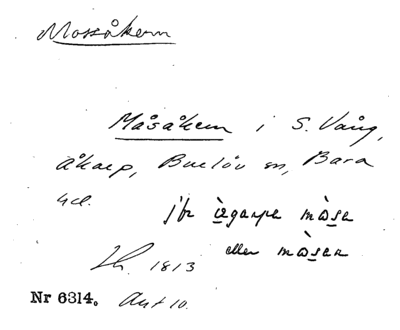 Mossåkern
Måsåkern i S. Vång,
åkarp, Burlöv sn, Bara
hd.
jfr ægarpe mose
eller mosen
1813
Nr 6314. Ant 10.